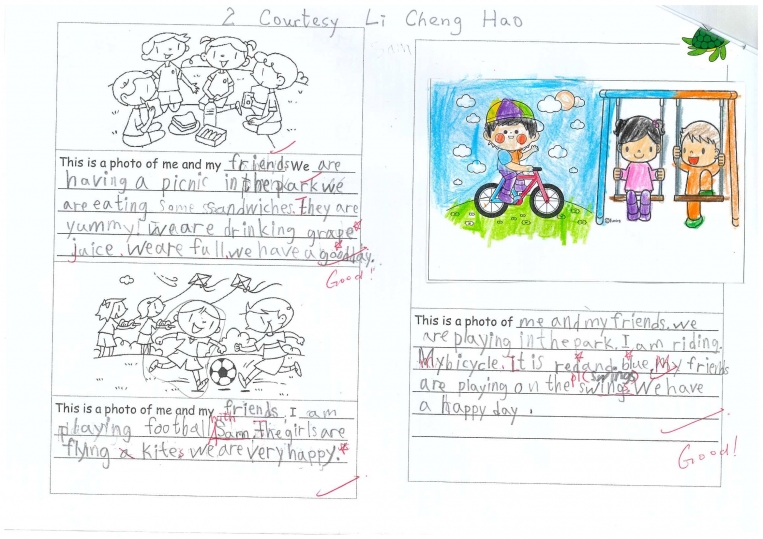 2 Courtesy Li Cheng Hao
This is a photo of me and my friends We are
having a picnic in the park we
are eating some sandwiches. They are
yummy! we are drinking grape
juice. we are full. we have a good day.
Good!
This is a photo of me and my friends. I am
playing football with Sam. The girls are
flying a kites we are very happy.
This is a photo of me and my friends. we
are playing in the park. I am riding.
My bicycle. It is red and blue. My friends
are playing on the swings We have
a happy day.
Good!